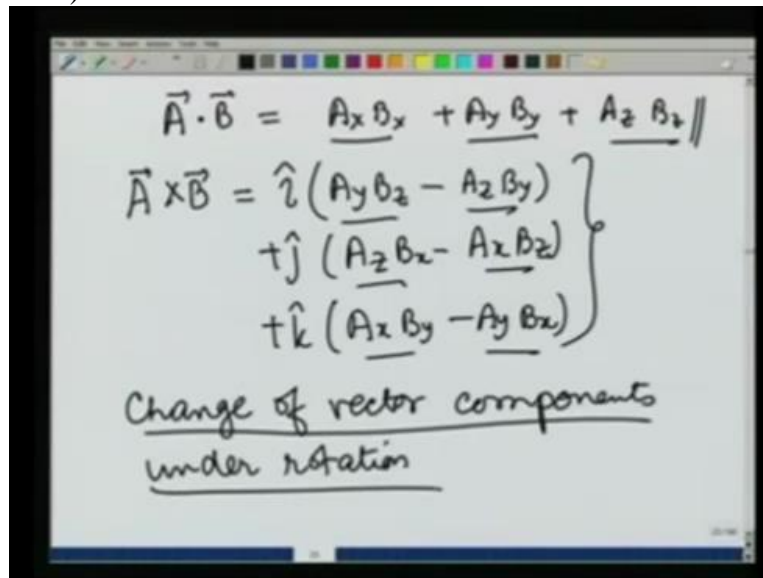 A⃗ · B⃗ = AxBx + AyBy + AzBz ||
A⃗ × B⃗ = î (AyBz − AzBy)
+ĵ (AzBx − AxBz)
+k̂ (AxBy − AyBx)
Change of vector components
under rotation